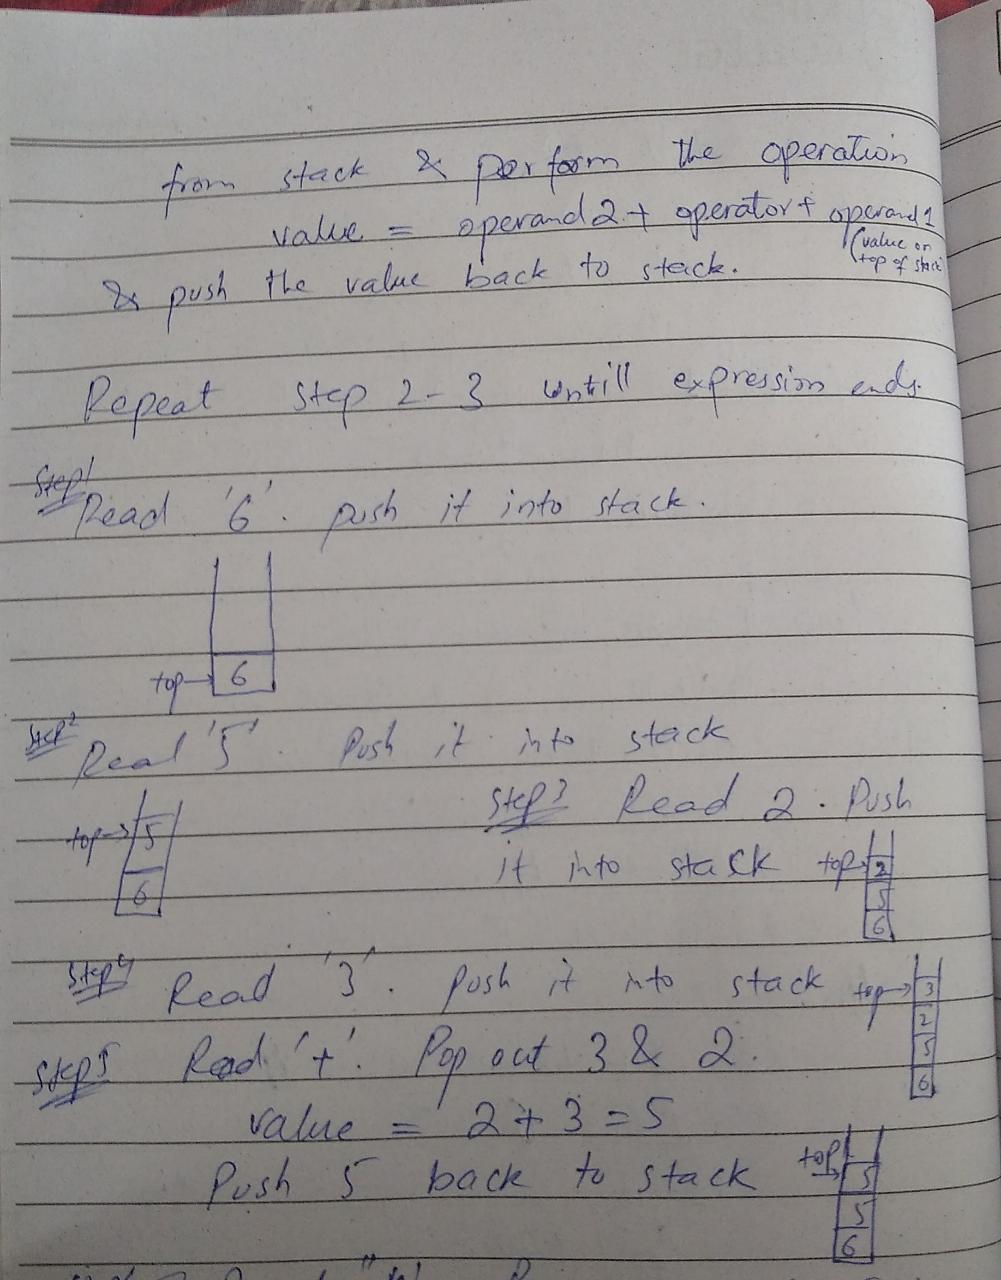 from stack & perform the operation
value = operand2 + operator + operand1
(value on
top of stack
& push the value back to stack.
Repeat step 2-3 untill expression ends.
Step1
Read '6'. push it into stack.
top→ 6
Step2
Read '5'. Push it into stack
top→ 5
6
Step3 Read 2. Push
it into stack
top→ 2
5
6
Step4 Read '3'. push it into stack
top→ 3
2
5
6
Step5 Read '+'. Pop out 3 & 2.
value = 2 + 3 = 5
Push 5 back to stack
top→ 5
5
6